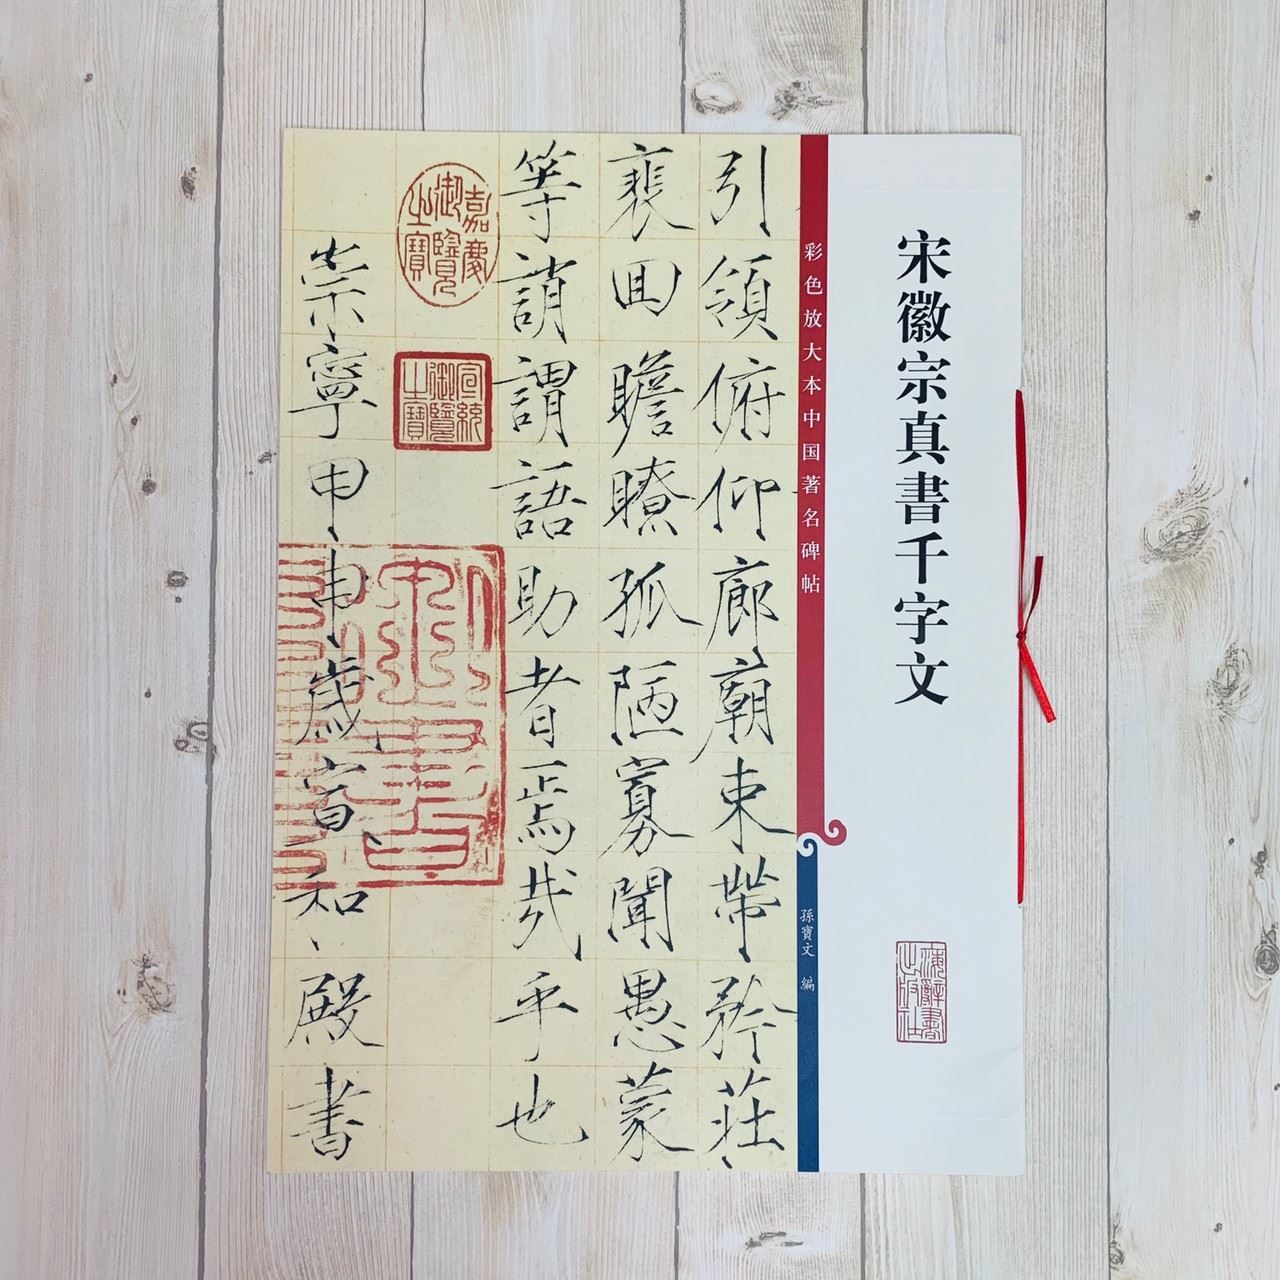 宋徽宗真書千字文
海辭書出版社
彩色放大本中国著名碑帖
孫寶文 編
引領俯仰廊廟束帶矜莊
裴回瞻瞭孤陋寡聞愚蒙
等誚謂語助者焉哉乎也
嘉慶御覽之寶
宣統御覽之寶
崇寧甲申歲宣和殿書